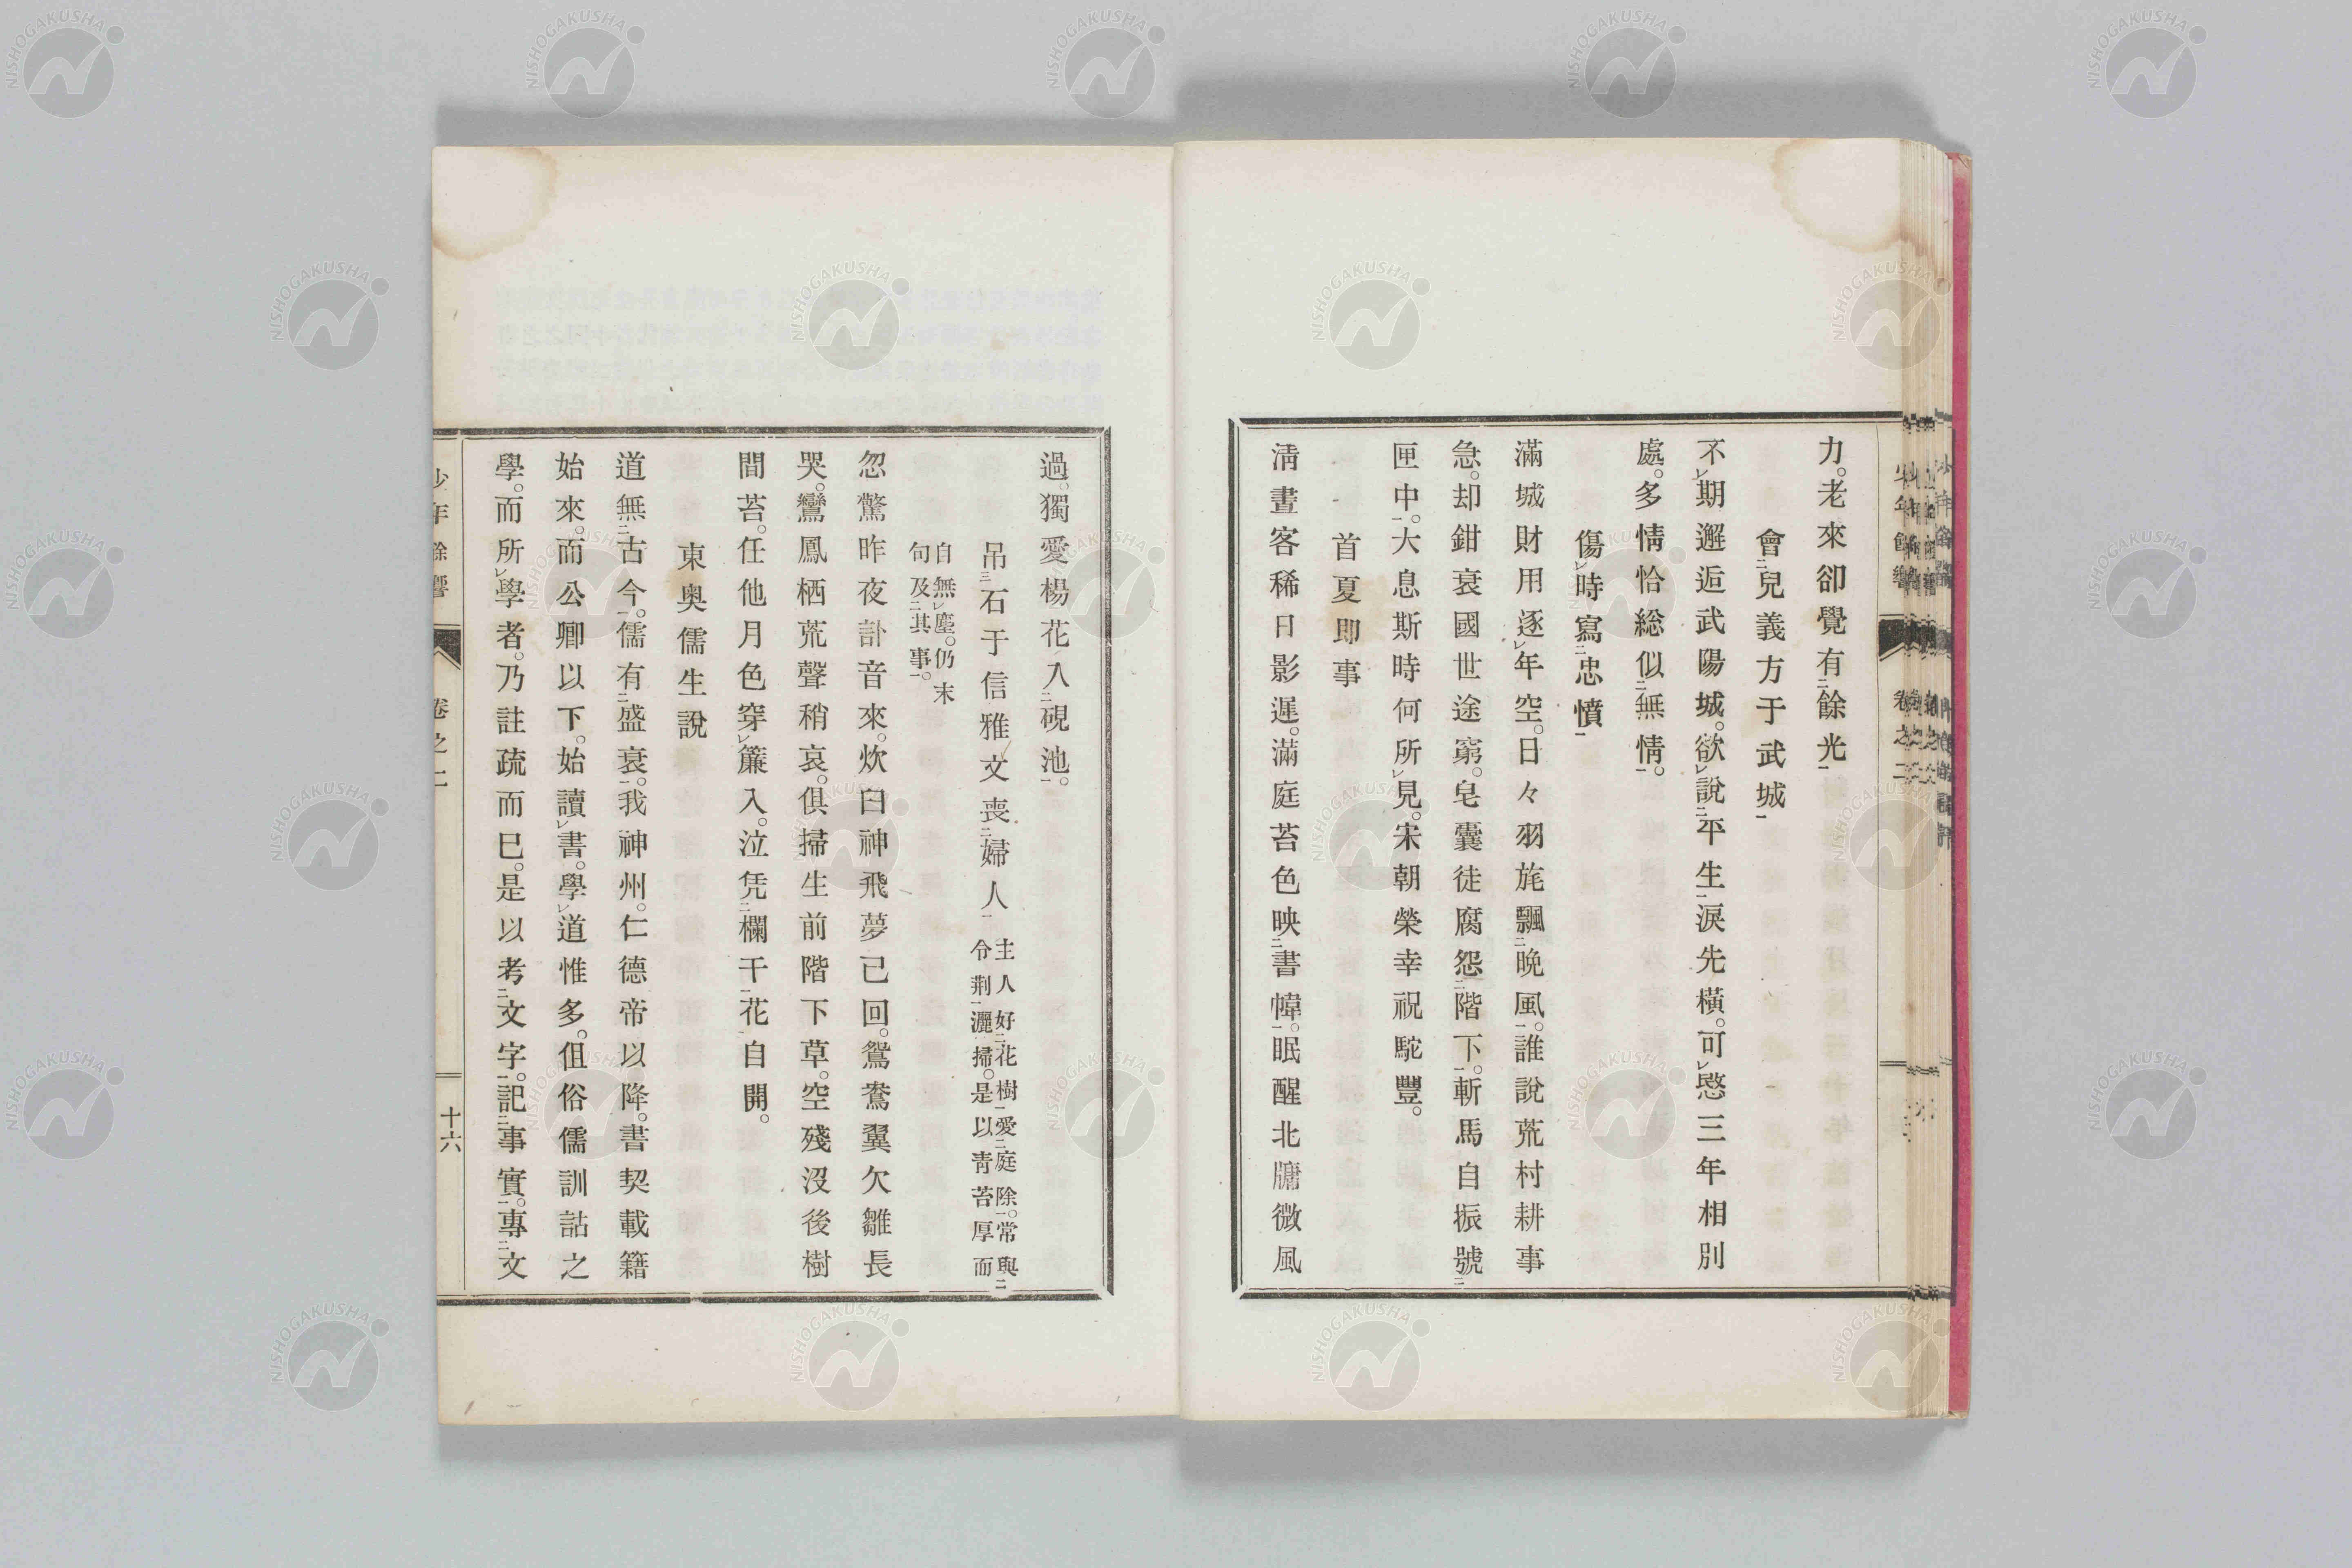 力。老來卻覺有二餘光一
會二兒義方于武城一
不レ期邂逅武陽城。欲レ說二平生一淚先橫。可レ愍三年相別
處。多情恰總似二無情一。
傷レ時寫二忠憤一
滿城財用逐レ年空。日々羽旄飄二晩風一。誰說荒村耕事
急。却鉗衰國世途窮。皂囊徒腐怨二階下一。斬馬自振號二
匣中一。大息斯時何所レ見。宋朝榮幸祝駝豐。
首夏即事
淸晝客稀日影遲。滿庭苔色映二書幃一。眠醒北牖微風
過。獨愛楊花入二硯池一。
吊三石于信雅文喪二婦人一
主人好二花樹一愛二庭除一。常與二
令荆一灑掃。是以靑苔厚而
自無レ塵。仍末
句及二其事一。
忽驚昨夜訃音來。炊臼神飛夢已回。鴛鴦翼欠雛長
哭。鸞鳳栖荒聲稍哀。俱掃生前階下草。空殘沒後樹
間苔。任他月色穿レ簾入。泣凭二欄干一花自開。
東奧儒生說
道無二古今一。儒有二盛衰一。我神州。仁德帝以降。書契載籍
始來。而公卿以下。始讀レ書。學レ道惟多。但俗儒訓詁之
學。而所レ學者。乃註疏而巳。是以考二文字一。記二事實一。專二文
少年餘響
卷之二
十六
NISHOGAKUSHA